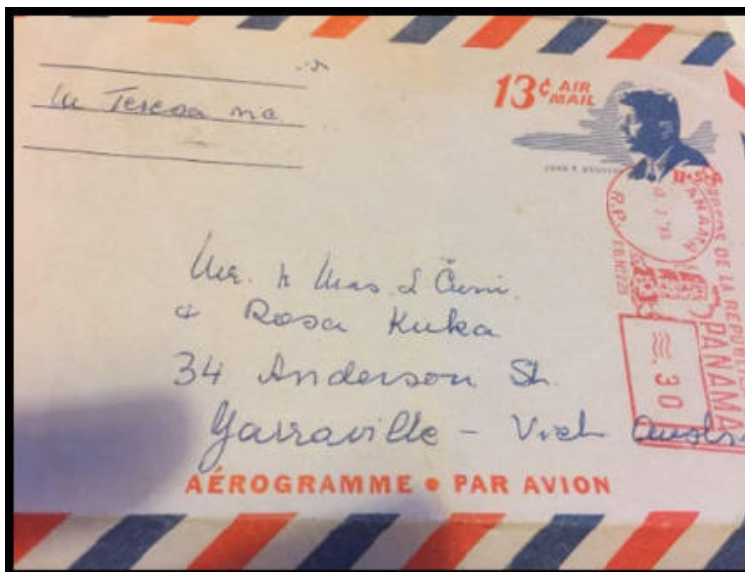 M Teresa mc
13¢ AIR
MAIL
JOHN F. KENNEDY
U·S·A
PANAMA
R.P.
CORREOS DE LA REPUBLICA
PANAMA
.30
Mr. & Mrs. L Čuni.
& Rosa Kuka
34 Anderson St.
Yarraville - Vict Austr
AÉROGRAMME • PAR AVION